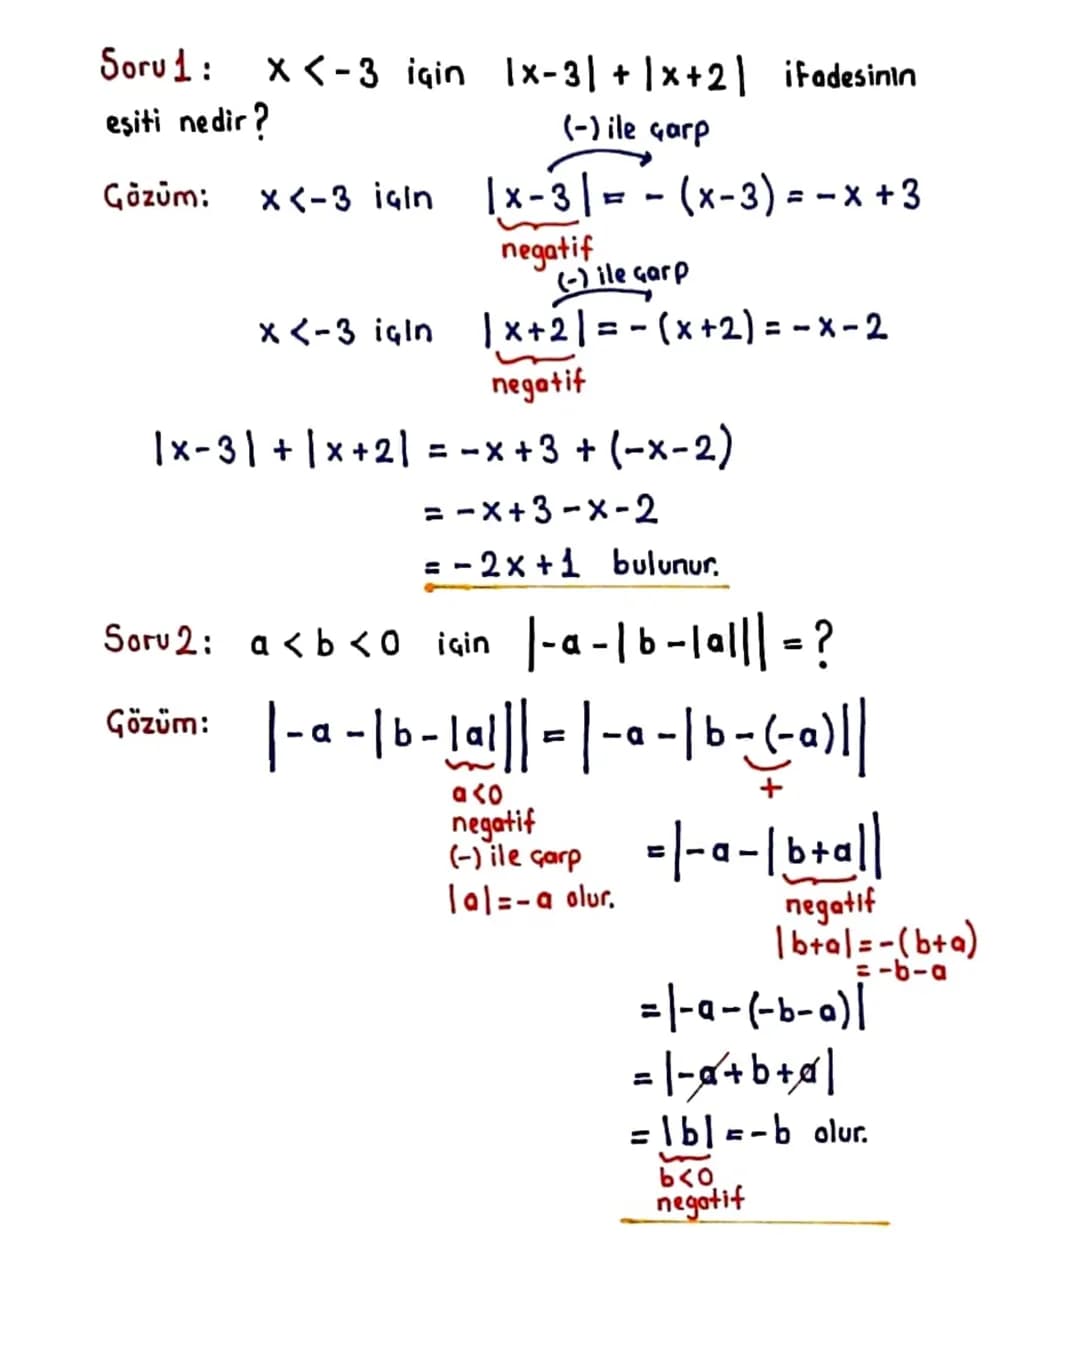 Soru 1: x < -3 için |x-3| + |x+2| ifadesinin
eşiti nedir?
(-) ile çarp
Çözüm: x < -3 için |x-3| = - (x-3) = -x + 3
negatif
(-) ile çarp
x < -3 için |x+2| = - (x+2) = -x - 2
negatif
|x-3| + |x+2| = -x + 3 + (-x-2)
= -x + 3 - x - 2
= -2x + 1 bulunur.
Soru 2: a < b < 0 için |-a-|b-|a||| = ?
Çözüm: |-a-|b-|a||| = |-a-|b-(-a)||
a<0
+
negatif
(-) ile çarp
= |-a-|b+a||
|a| = -a olur.
negatif
|b+a| = -(b+a)
= -b-a
= |-a-(-b-a)|
= |-a+b+a|
= |b| = -b olur.
b<0
negatif